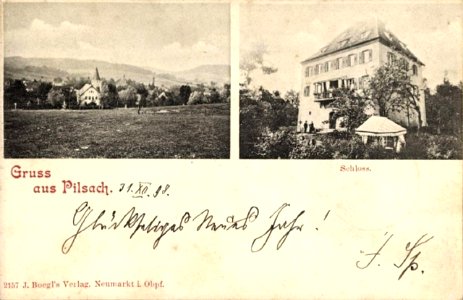 Schloss.
Gruss
aus Pilsach, 31. XII. 98.
Glückseliges Neues Jahr!
J. Sp.
2157 J. Boegl's Verlag. Neumarkt i. Obpf.